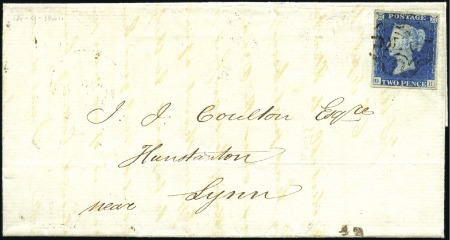 POSTAGE
TWO PENCE
J. J. Coulton Esqre
Hunstanton
near Lynn